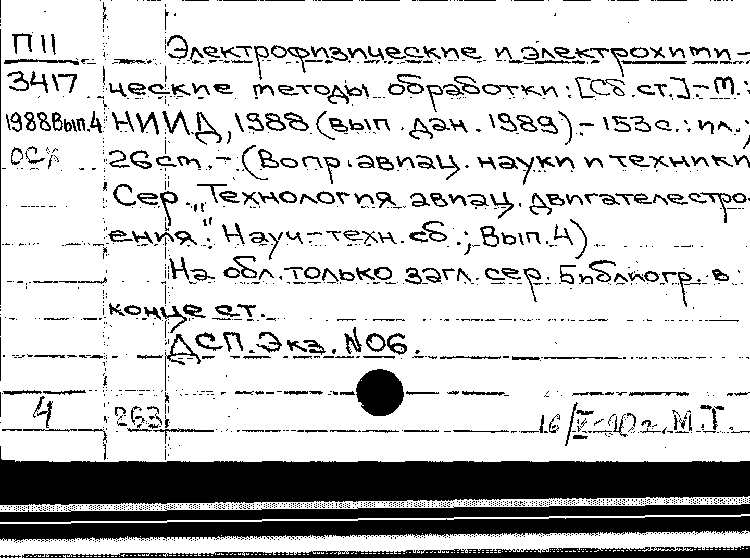 П11 Электрофизические и электрохими-
3417 ческие методы обработки: [Сб. ст.] - М.:
1988 Вып.4 НИИД, 1988 (вып. дан. 1989). - 153 с.: ил.;
ОСХ 26 cm. - (Вопр. авиац. науки и техники
Сер. „Технология авиац. двигателестро-
ения": Науч-техн. сб.; Вып. 4)
На обл. только загл. сер. Библиогр. в
конце ст.
ДСП. Экз. N 06.
4 263 16/V-90 г. М.Т.